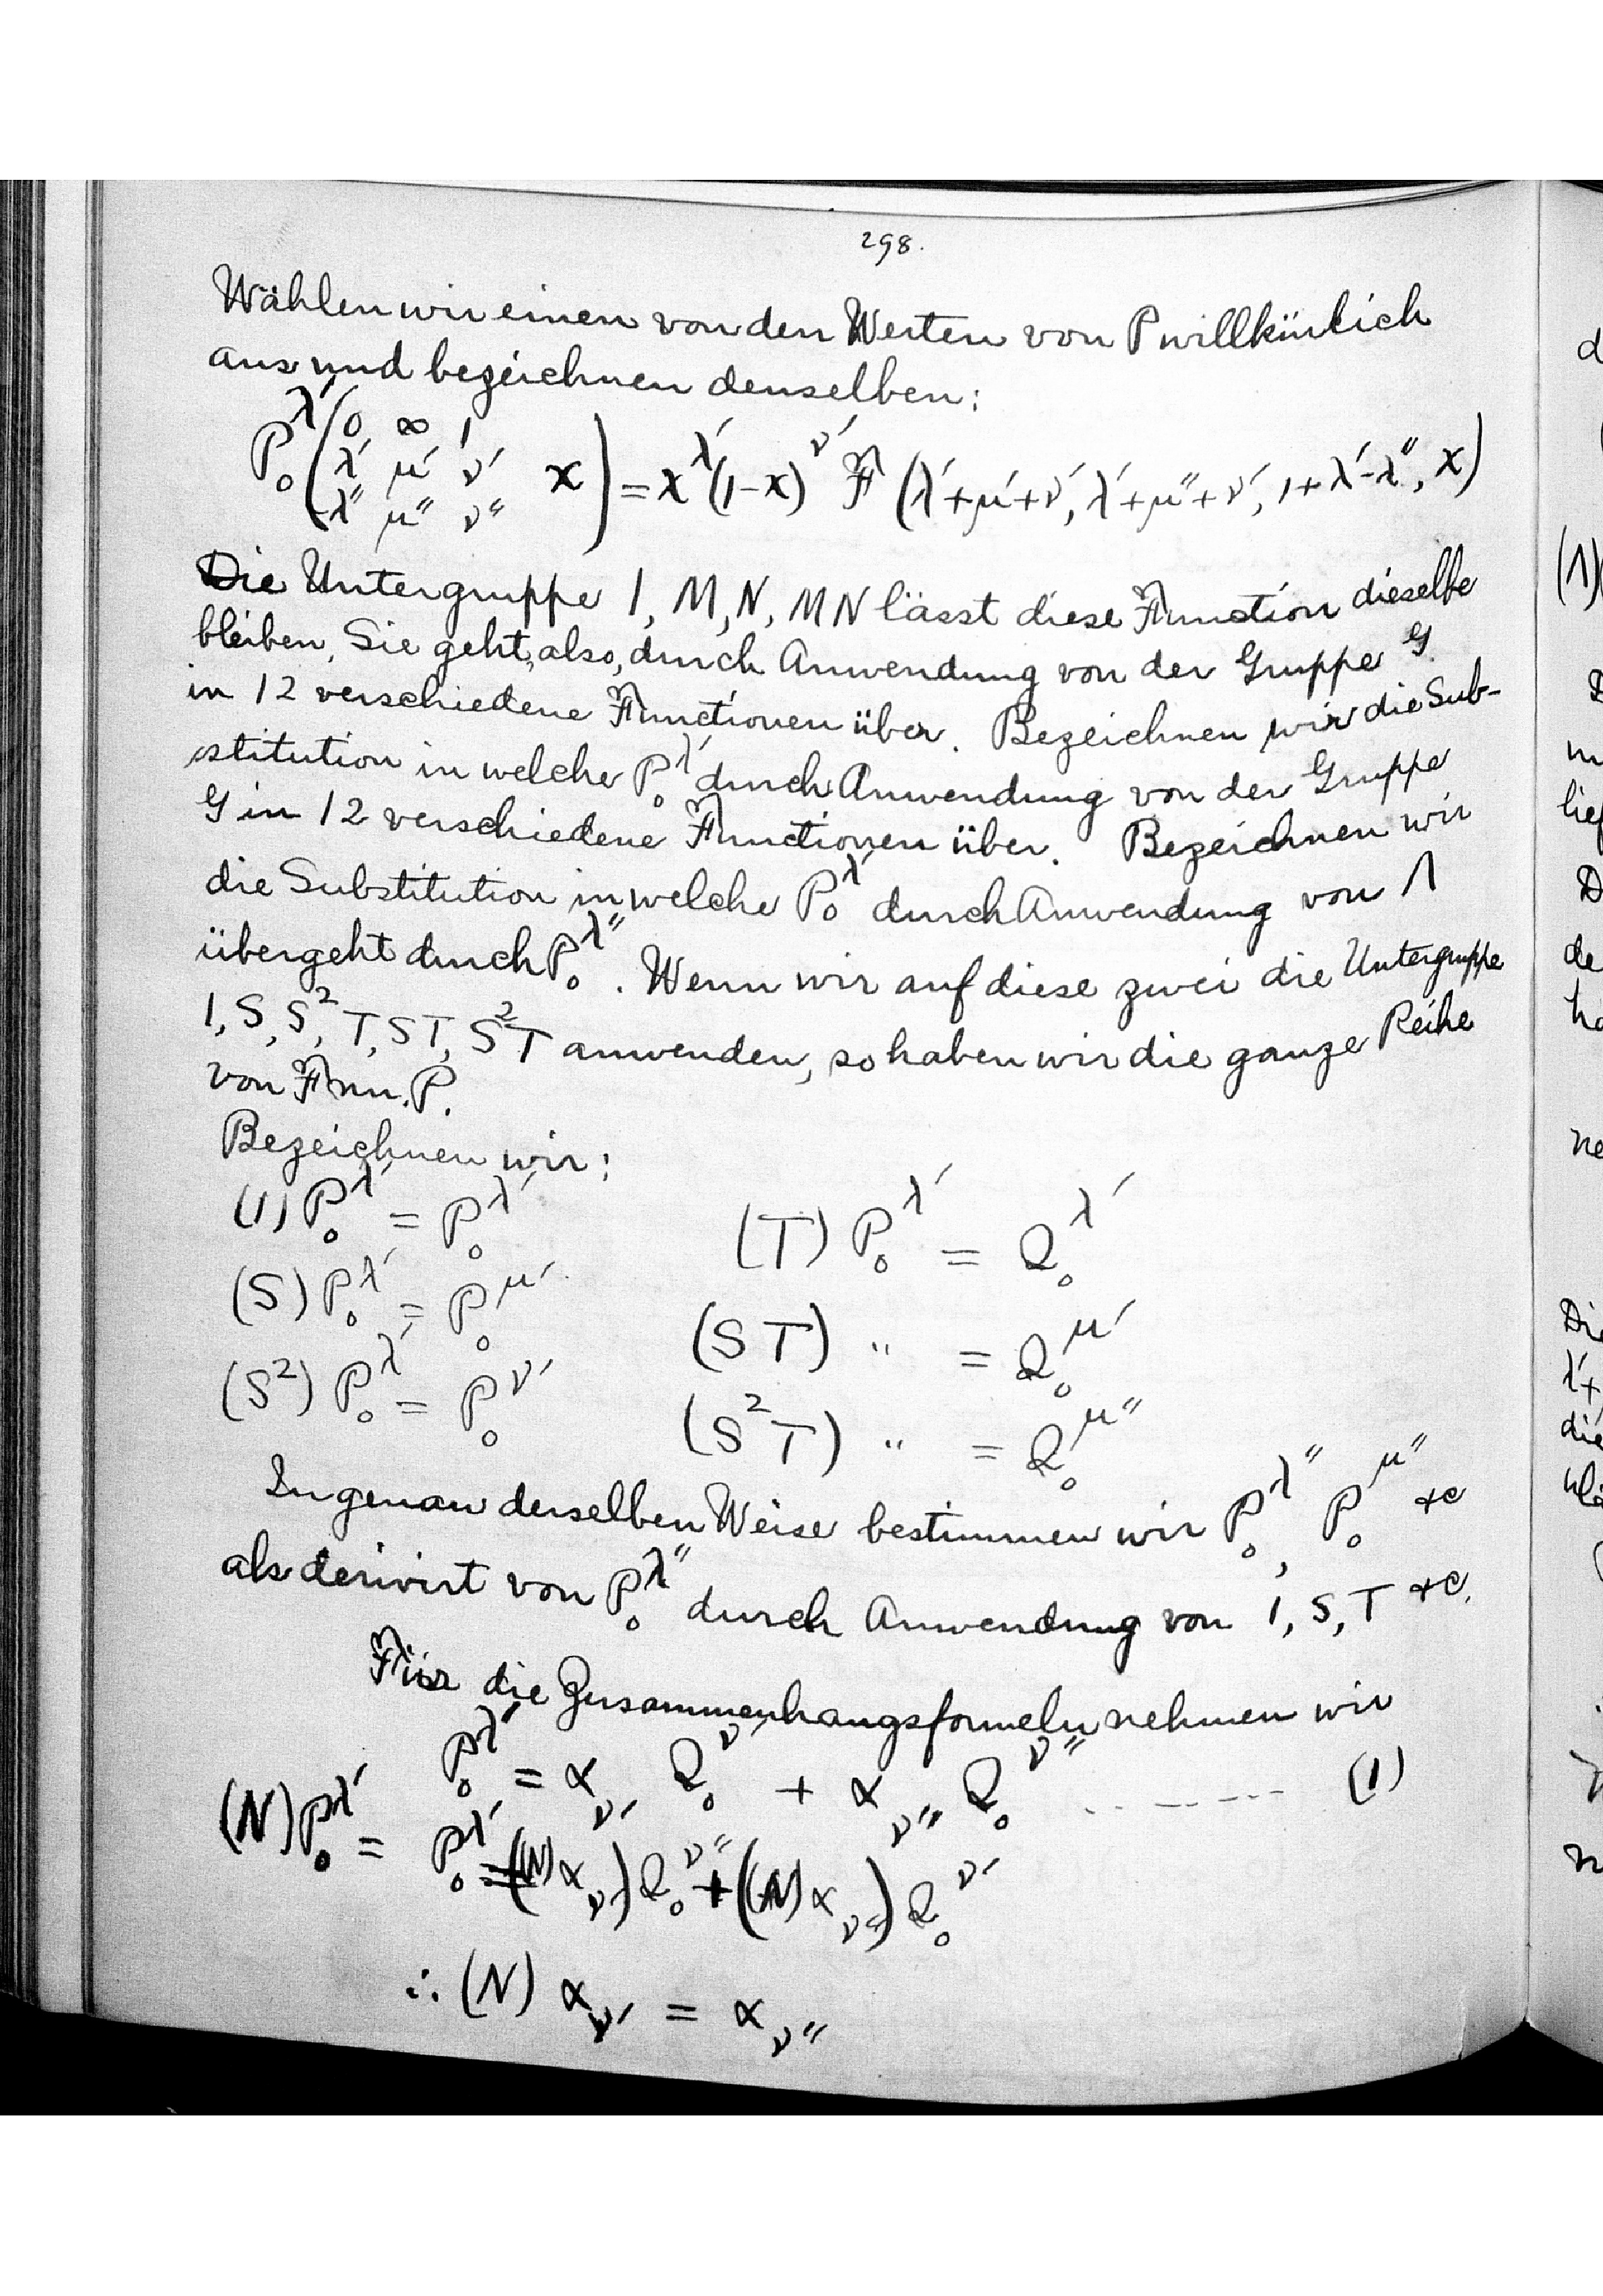 298.
Wählen wir einen von den Werten von P willkürlich
aus und bezeichnen denselben:
P₀^λ′ ( 0 ∞ 1
λ′ μ′ ν′ x ) = x^λ′ (1-x)^ν′ F (λ′+μ′+ν′, λ′+μ″+ν′, 1+λ′-λ″, x)
λ″ μ″ ν″
Die Untergruppe 1, M, N, MN lässt diese Function dieselbe
bleiben, Sie geht, also, durch Anwendung von der Gruppe G
in 12 verschiedene Functionen über. Bezeichnen wir die Sub-
stitution in welche P₀^λ′ durch Anwendung von der Gruppe
G in 12 verschiedene Functionen über. Bezeichnen wir
die Substitution in welche P₀^λ′ durch Anwendung von Λ
übergeht durch P₀^λ″. Wenn wir auf diese zwei die Untergruppe
1, S, S², T, ST, S²T anwenden, so haben wir die ganze Reihe
von Fnn. P.
Bezeichnen wir:
(1) P₀^λ′ = P₀^λ′ (T) P₀^λ′ = Q₀^λ′
(S) P₀^λ′ = P₀^μ′ (ST) " = Q₀^μ′
(S²) P₀^λ′ = P₀^ν′ (S²T) " = Q₀^μ″
In genau derselben Weise bestimmen wir P₀^λ″, P₀^μ″ &c
als derivirt von P₀^λ″ durch Anwendung von 1, S, T &c.
Für die Zusammenhangsformeln nehmen wir
P₀^λ′ = α_ν′ Q₀^ν′ + α_ν″ Q₀^ν″ ------ (1)
(N) P₀^λ′ = P₀^λ′ = ((N) α_ν′) Q₀^ν″ + ((N) α_ν″) Q₀^ν′
∴ (N) α_ν′ = α_ν″